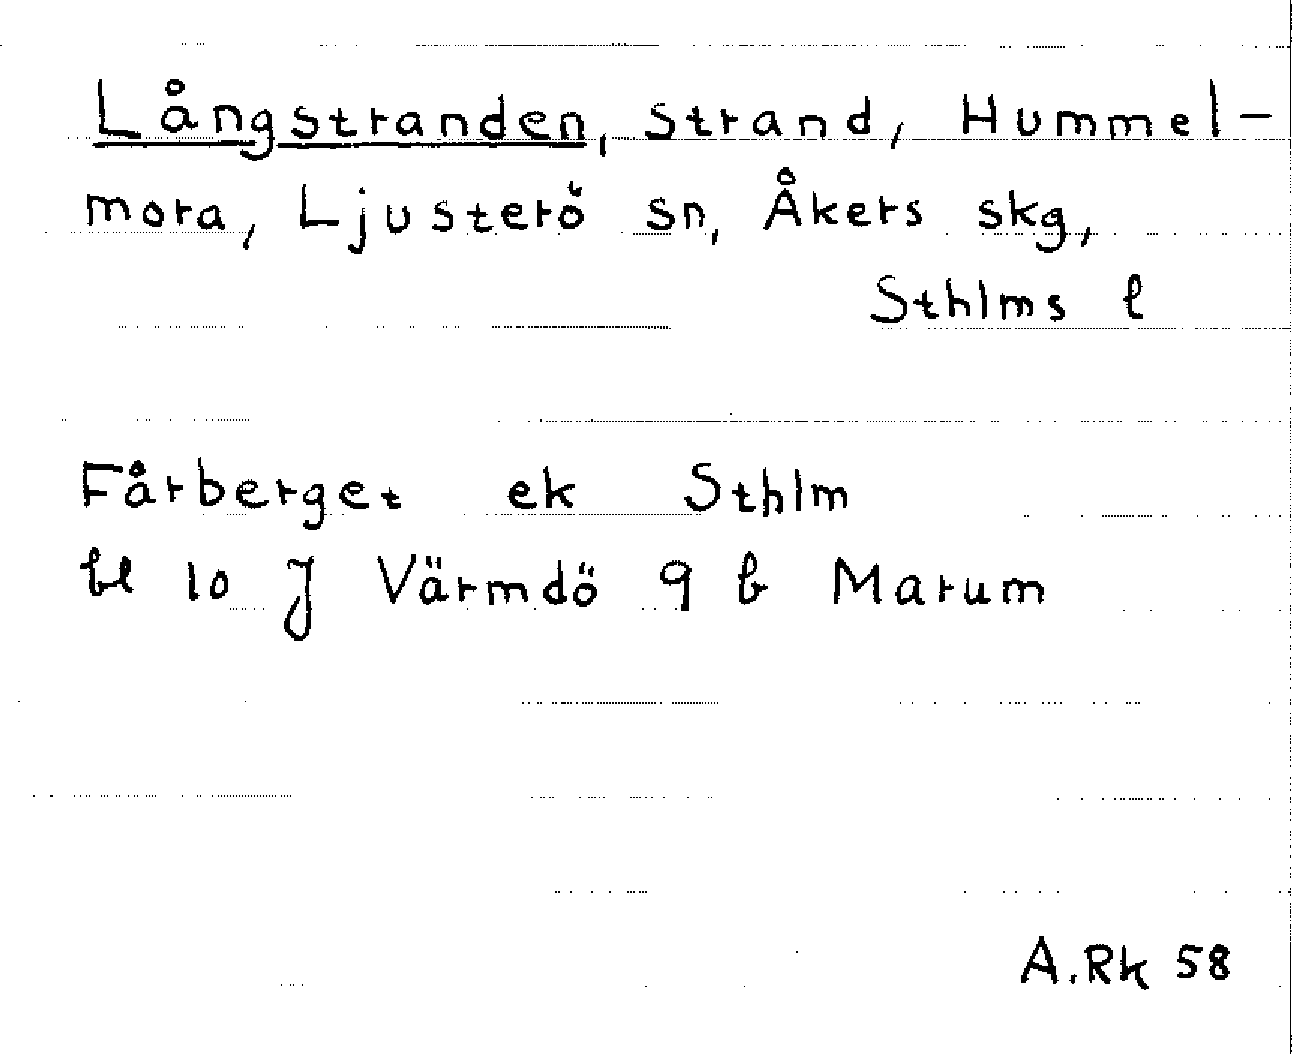 Långstranden, strand, Hummel-
mora, Ljusterö sn, Åkers skg,
Sthlms l
Fårberget ek Sthlm
bl 10 J Värmdö 9 b Marum
A.Rk 58